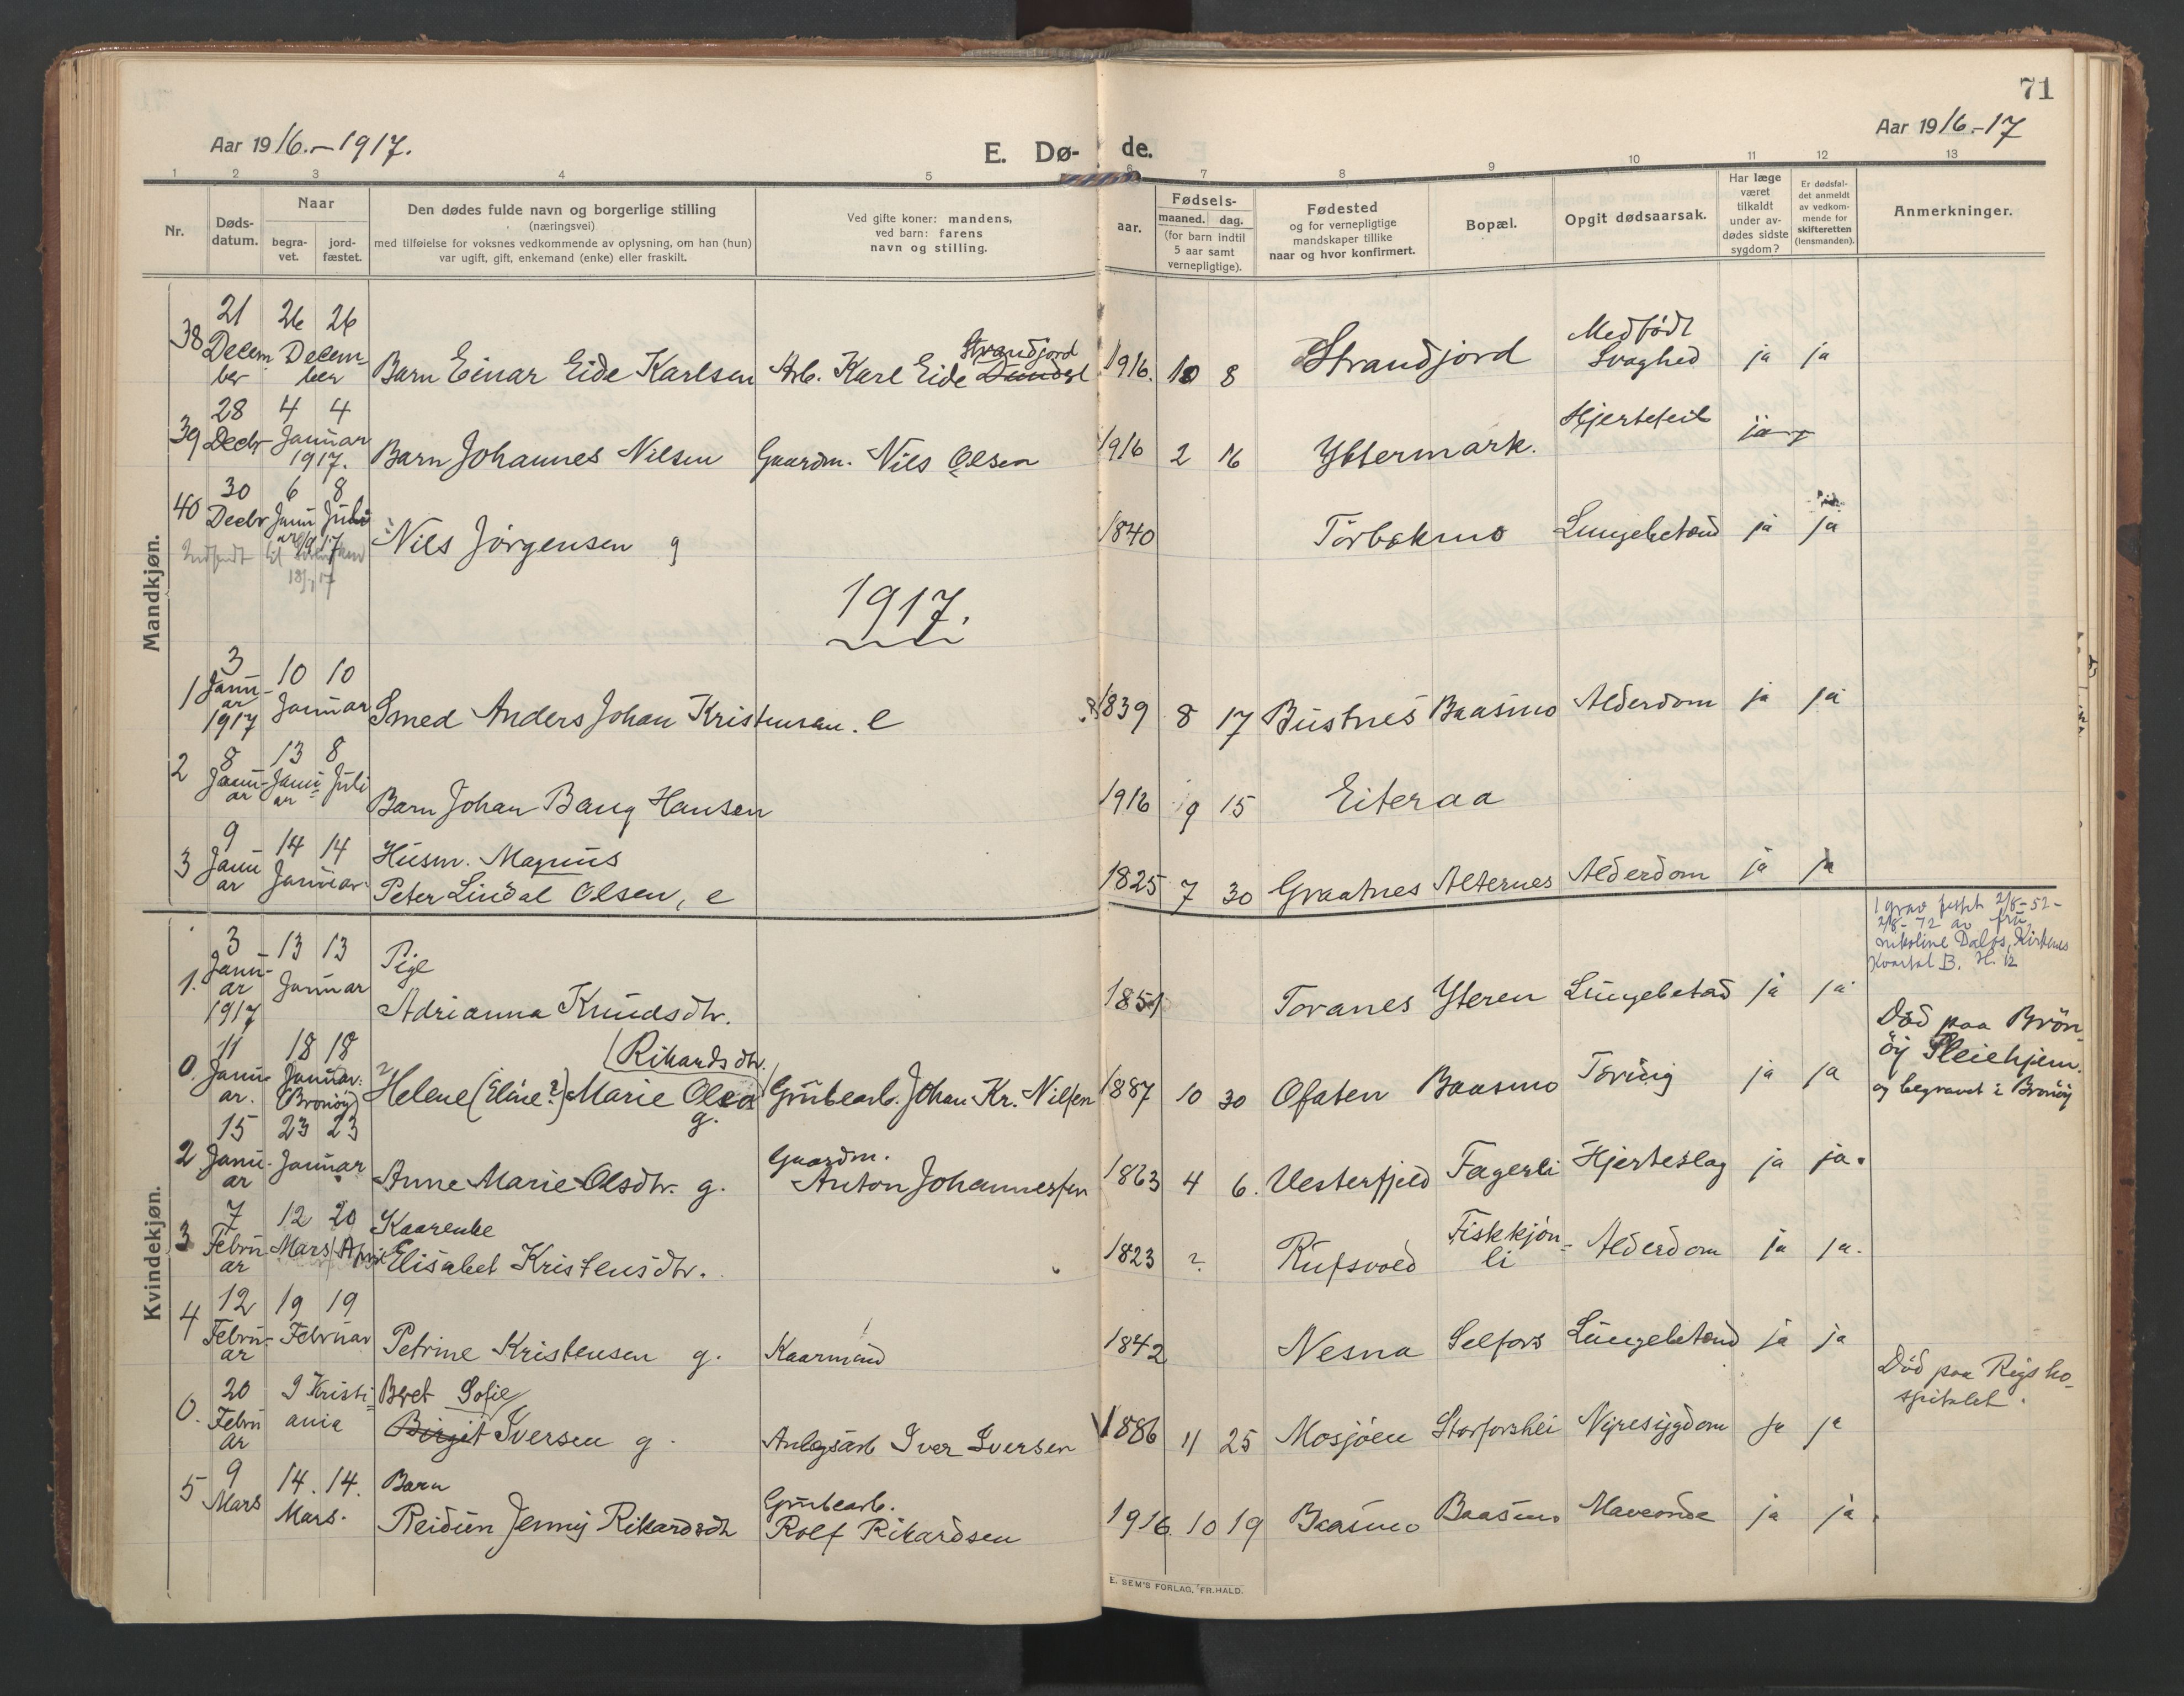 71
Aar 1916.-1917.
E. Dø- de.
Aar 1916.-17
1 2 3 4 5 6 7 8 9 10 11 12 13
Nr.
Døds-
datum.
Naar
begra-
vet.
jord-
fæstet.
Den dødes fulde navn og borgerlige stilling
(næringsvei)
med tilføielse for voksnes vedkommende av oplysning, om han (hun)
var ugift, gift, enkemand (enke) eller fraskilt.
Ved gifte koner: mandens,
ved barn: farens
navn og stilling.
Fødsels-
aar.
maaned. dag.
(for barn indtil
5 aar samt
vernepligtige).
Fødested
og for vernepligtige
mandskaper tillike
naar og hvor konfirmert.
Bopæl.
Opgit dødsaarsak.
Har læge
været
tilkaldt
under av-
dødes sidste
sygdom?
Er dødsfal-
det anmeldt
av vedkom-
mende for
skifteretten
(lensmanden).
Anmerkninger.
Mandkjøn.
21 26 26
38 Decem Decem-
ber ber
Barn Einar Eide Karlsen Arb. Karl Eide Strandjord 1916. 10 8 Strandjord Medfödt
Svaghed ja ja
28 4 4
39 Decbr Januar
1917.
Barn Johannes Nilsen Gaardm. Nils Olsen 1916 2 16 Yttermark. Hjertefeil ja
30 6 8
40 Decbr Janu Juli
ar 1917
Nils Jörgensen g 1840 Törbakmo Lungebetænd ja ja
1917.
3 10 10
1 Janu- Januar
ar
1917
Smed Anders Johan Kristensen. e 1839 8 17 Bustnes Baasmo Alderdom ja ja
8 13 8
2 Janu- Janu- Juli
ar ar
Barn Johan Bang Hansen 1916 9 15 Eiteraa
9 14 14
3 Janu Januar
ar
Husm. Magnus
Peter Lindal Olsen, e 1825 7 30 Graatnes Alternes Alderdom ja ja
Kvindekjøn.
3 13 13
1. Janu- Januar
ar
1917
Pige
Adrianna Knudsdtr. 1851 Toranes Yteren Lungebetæd ja ja
1 grav festet 2/8-52-
2/8-72 av fru
nikoline Dalos, Kirkenes
Kvartal B. H. 12
11 18 18
0. Janu- Januar:
ar. (Brönöy)
(Rikardsdtr.
Helene (Eline?) Marie Olsa g. Grubearb. Johan Kr. Nilsen 1887 10 30 Ofoten Baasmo Töring ja ja
Död paa Brön-
öy Pleiehjem.
og begravet i Brönöy
15 23 23
2 Janu- Januar
ar
Anne Marie Olsdtr. g. Gaardm.
Anton Johannessen 1863 4 6. Vesterfjeld Fagerli Hjerteslag ja ja.
7 12 20
3 Febru- Mars April
ar
Kaarenke
Elisabet Kristensdtr. 1823 ? Rufsvold Fiskkjön-
li Alderdom ja ja.
12 19 19
4 Febru- Februar
ar
Petrine Kristensen g. Kaarmand 1842 Nesna Selfors Lungebetænd ja ja
20 I Kristi-
0. Febru ania
ar
Beret Sofie
Birgit Iversen g. Anlegsarb Iver Iversen 1886 11 25 Mosjöen Storforshei Nyresygdom ja ja
Död paa Rigsho-
spitalet.
9 14. 14.
5 Mars Mars.
Barn
Reidun Jenny Rikardsdtr Grubearb.
Rolf Rikardsen 1916 10 19 Baasmo Baasmo Maveonde ja ja.
E. SEM'S FORLAG, FR.HALD.